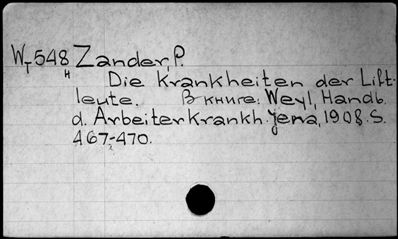 W-548 Zander, P.
т
н
Die Krankheiten der Lift-
leute. В книге: Weyl, Handb.
d. Arbeiterkrankh. Jena, 1908. S.
467-470.